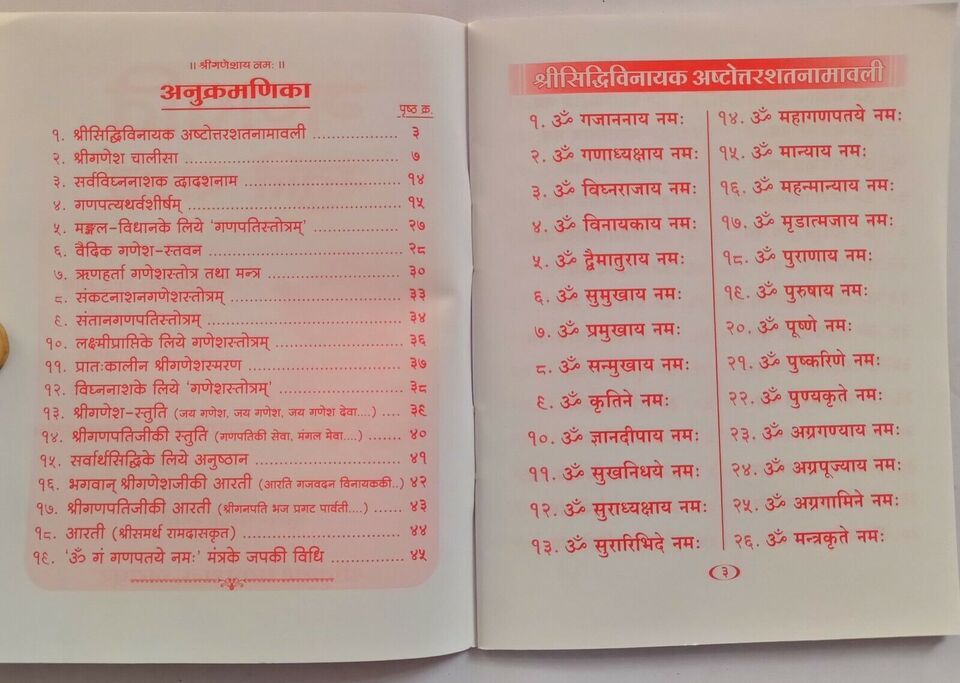 ॥ श्रीगणेशाय नमः ॥
अनुक्रमणिका
पृष्ठ क्र.
१. श्रीसिद्धिविनायक अष्टोत्तरशतनामावली .................. ३
२. श्रीगणेश चालीसा .................. ७
३. सर्वविघ्ननाशक द्वादशनाम .................. १४
४. गणपत्यथर्वशीर्षम् .................. १५
५. मङ्गल-विधानके लिये ‘गणपतिस्तोत्रम्’ .................. २७
६. वैदिक गणेश-स्तवन .................. २८
७. ऋणहर्ता गणेशस्तोत्र तथा मन्त्र .................. ३०
८. संकटनाशनगणेशस्तोत्रम् .................. ३३
९. संतानगणपतिस्तोत्रम् .................. ३४
१०. लक्ष्मीप्राप्तिके लिये गणेशस्तोत्रम् .................. ३६
११. प्रातःकालीन श्रीगणेशस्मरण .................. ३७
१२. विघ्ननाशके लिये ‘गणेशस्तोत्रम्’ .................. ३८
१३. श्रीगणेश-स्तुति (जय गणेश, जय गणेश, जय गणेश देवा....) .... ३९
१४. श्रीगणपतिजीकी स्तुति (गणपतिकी सेवा, मंगल मेवा....) ....... ४०
१५. सर्वार्थसिद्धिके लिये अनुष्ठान .................. ४१
१६. भगवान् श्रीगणेशजीकी आरती (आरति गजवदन विनायककी..) ४२
१७. श्रीगणपतिजीकी आरती (श्रीगनपति भज प्रगट पार्वती....) ...... ४३
१८. आरती (श्रीसमर्थ रामदासकृत) .................. ४४
१९. ‘ॐ गं गणपतये नमः’ मंत्रके जपकी विधि .................. ४५
श्रीसिद्धिविनायक अष्टोत्तरशतनामावली
१. ॐ गजाननाय नमः
२. ॐ गणाध्यक्षाय नमः
३. ॐ विघ्नराजाय नमः
४. ॐ विनायकाय नमः
५. ॐ द्वैमातुराय नमः
६. ॐ सुमुखाय नमः
७. ॐ प्रमुखाय नमः
८. ॐ सन्मुखाय नमः
९. ॐ कृतिने नमः
१०. ॐ ज्ञानदीपाय नमः
११. ॐ सुखनिधये नमः
१२. ॐ सुराध्यक्षाय नमः
१३. ॐ सुरारिभिदे नमः
१४. ॐ महागणपतये नमः
१५. ॐ मान्याय नमः
१६. ॐ महन्मान्याय नमः
१७. ॐ मृडात्मजाय नमः
१८. ॐ पुराणाय नमः
१९. ॐ पुरुषाय नमः
२०. ॐ पूष्णे नमः
२१. ॐ पुष्करिणे नमः
२२. ॐ पुण्यकृते नमः
२३. ॐ अग्रगण्याय नमः
२४. ॐ अग्रपूज्याय नमः
२५. ॐ अग्रगामिने नमः
२६. ॐ मन्त्रकृते नमः
३